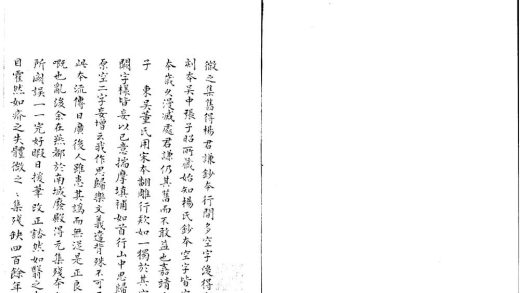 微之集舊得楊君謙鈔本行間多空字後得
刻本吳中張子昭所藏始知楊氏鈔本空字皆
本歲久漫滅處君謙仍其舊而不敢益也嘉靖
子 東吳董氏用宋本翻雕行欵如一獨於其
闕字樣皆妄以己意揣摩填補如首行山中思歸
原空二字妄增云我作思歸樂文義違背殊不可
此本流傳日廣後人雖患其譌而無從是正良
嘅也亂後余在燕都於南城廢殿得元集殘本
所闕誤一一完好暇日援筆改正豁然如翳之
目霍然如痾之失體微之、集殘缺四百餘年